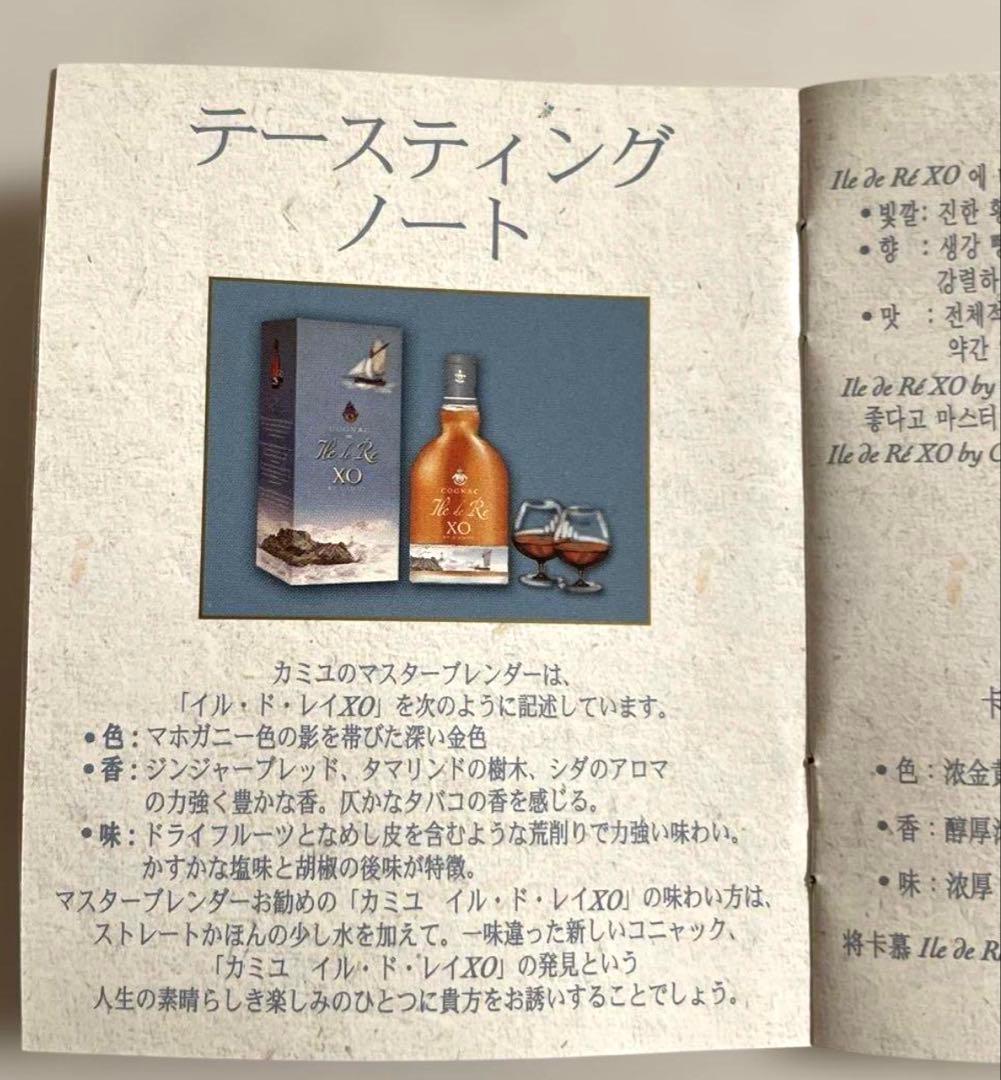 テースティング
ノート
COGNAC
Ile de Ré
XO
COGNAC
Ile de Ré
XO
カミユのマスターブレンダーは、
「イル・ド・レイXO」を次のように記述しています。
• 色 : マホガニー色の影を帯びた深い金色
• 香 : ジンジャーブレッド、タマリンドの樹木、シダのアロマ
の力強く豊かな香。仄かなタバコの香を感じる。
• 味 : ドライフルーツとなめし皮を含むような荒削りで力強い味わい。
かすかな塩味と胡椒の後味が特徴。
マスターブレンダーお勧めの「カミユ イル・ド・レイXO」の味わい方は、
ストレートかほんの少し水を加えて。一味違った新しいコニャック、
「カミユ イル・ド・レイXO」の発見という
人生の素晴らしき楽しみのひとつに貴方をお誘いすることでしょう。
Ile de Ré XO 에
• 빛깔 : 진한
• 향 : 생강
강렬하
• 맛 : 전체적
약간
Ile de Ré XO by
좋다고 마스터
Ile de Ré XO by C
• 色 : 浓金
• 香 : 醇厚
• 味 : 浓厚
将卡慕 Ile de R